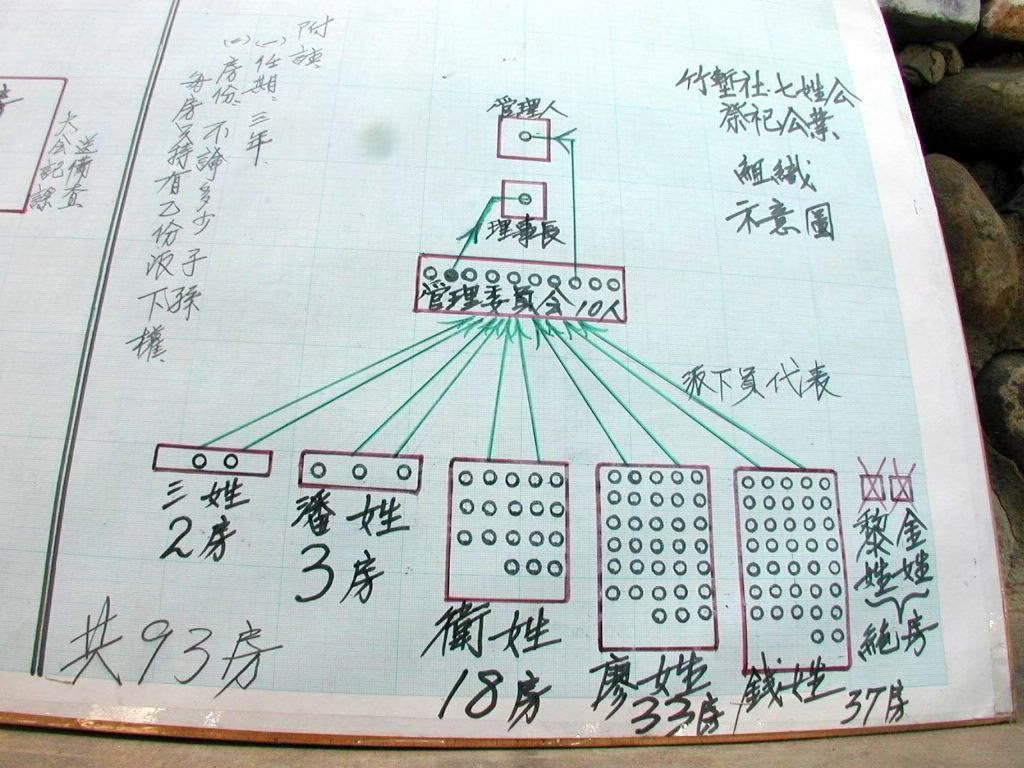 竹塹社七姓公
祭祀公業
組織
示意圖
管理人
理事長
管理委員會10人
派下員代表
三姓
2房
潘姓
3房
衛姓
18房
廖姓
33房
錢姓
37房
黎姓
金姓
絕房
共93房
附註
(一)任期:三年
(二)房份不論多少子孫
每房只持有乙份派下權
送備查
大會記錄